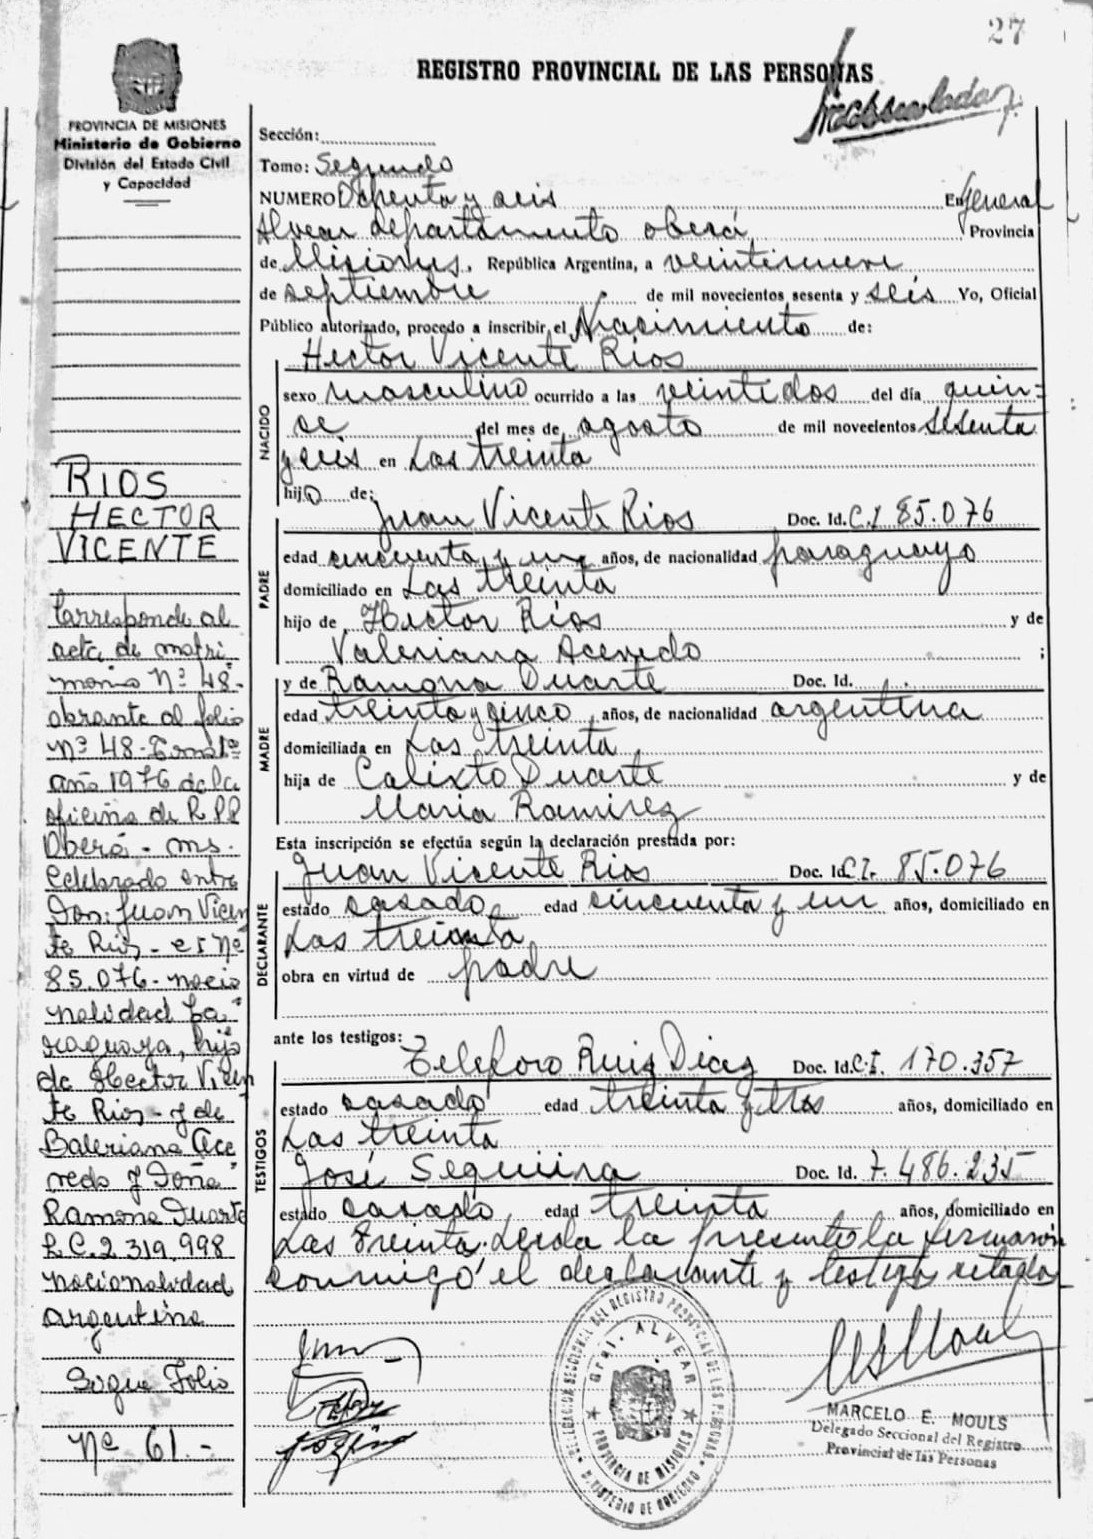 27
REGISTRO PROVINCIAL DE LAS PERSONAS
PROVINCIA DE MISIONES
Ministerio de Gobierno
División del Estado Civil
y Capacidad
Sección:
Tomo: Segundo
NUMERO Ochenta y seis En General
Alvear departamento oberá, Provincia
de Misiones. República Argentina, a veintinueve
de septiembre de mil novecientos sesenta y seis Yo, Oficial
Público autorizado, procedo a inscribir el Nacimiento de:
Hector Vicente Rios
NACIDO
sexo masculino ocurrido a las veintidos del día quin-
ce del mes de agosto de mil novecientos sesenta
y seis en Las treinta
hijo de:
Juan Vicente Rios Doc. Id. C.I 85.076
PADRE
edad cincuenta y un años, de nacionalidad paraguayo
domiciliado en Las treinta
hijo de Hector Ríos y de
Valeriana Acevedo ;
y de Ramona Duarte Doc. Id.
MADRE
edad treinta y cinco años, de nacionalidad argentina
domiciliada en Las treinta
hija de Calixto Duarte y de
Maria Ramirez
Esta inscripción se efectúa según la declaración prestada por:
Juan Vicente Rios Doc. Id. C.I. 85.076
DECLARANTE
estado casado edad cincuenta y un años, domiciliado en
Las treinta
obra en virtud de padre
ante los testigos:
Teleforo Ruis Diaz Doc. Id. C.I. 170.357
TESTIGOS
estado casado edad treinta y tres años, domiciliado en
Las treinta
José Sequeira Doc. Id. 7.486.235
estado casado edad treinta años, domiciliado en
Las treinta. Leida la presente la firmaron
conmigo el declarante y testigos citados
RIOS
HECTOR
VICENTE
Corresponde al
acta de matri
monio Nº 48-
obrante al folio
Nº 48- Tomo 1º
año 1976 de la
oficina de R PP
Oberá - ms.
Celebrado entre
Don: Juan Vicen
te Rios - c I Nº
85.076- nacio
nalidad Pa
raguaya, hijo
de Hector Vicen
te Rios - y de
Baleriana Ace
vedo y Doña
Ramona Duarte
L.C. 2.319.998
nacionalidad
argentina
Sigue Folio
Nº 61.-
DELEGACION SECCIONAL DEL REGISTRO PROVINCIAL DE LAS PERSONAS
Gral. ALVEAR
PROVINCIA DE MISIONES
MINISTERIO DE GOBIERNO
MARCELO E. MOULS
Delegado Seccional del Registro
Provincial de las Personas